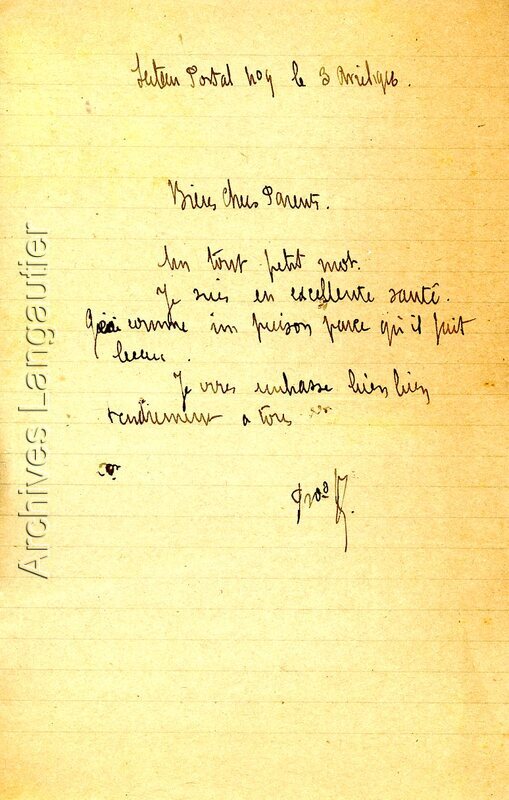 Secteur Postal No 9 le 3 Avril 1916.
Bien Chers Parents.
Un tout petit mot.
Je suis en excellente santé.
Gai comme un pinson parce qu'il fait
beau.
Je vous embrasse bien bien
tendrement a tous
Archives Langautier